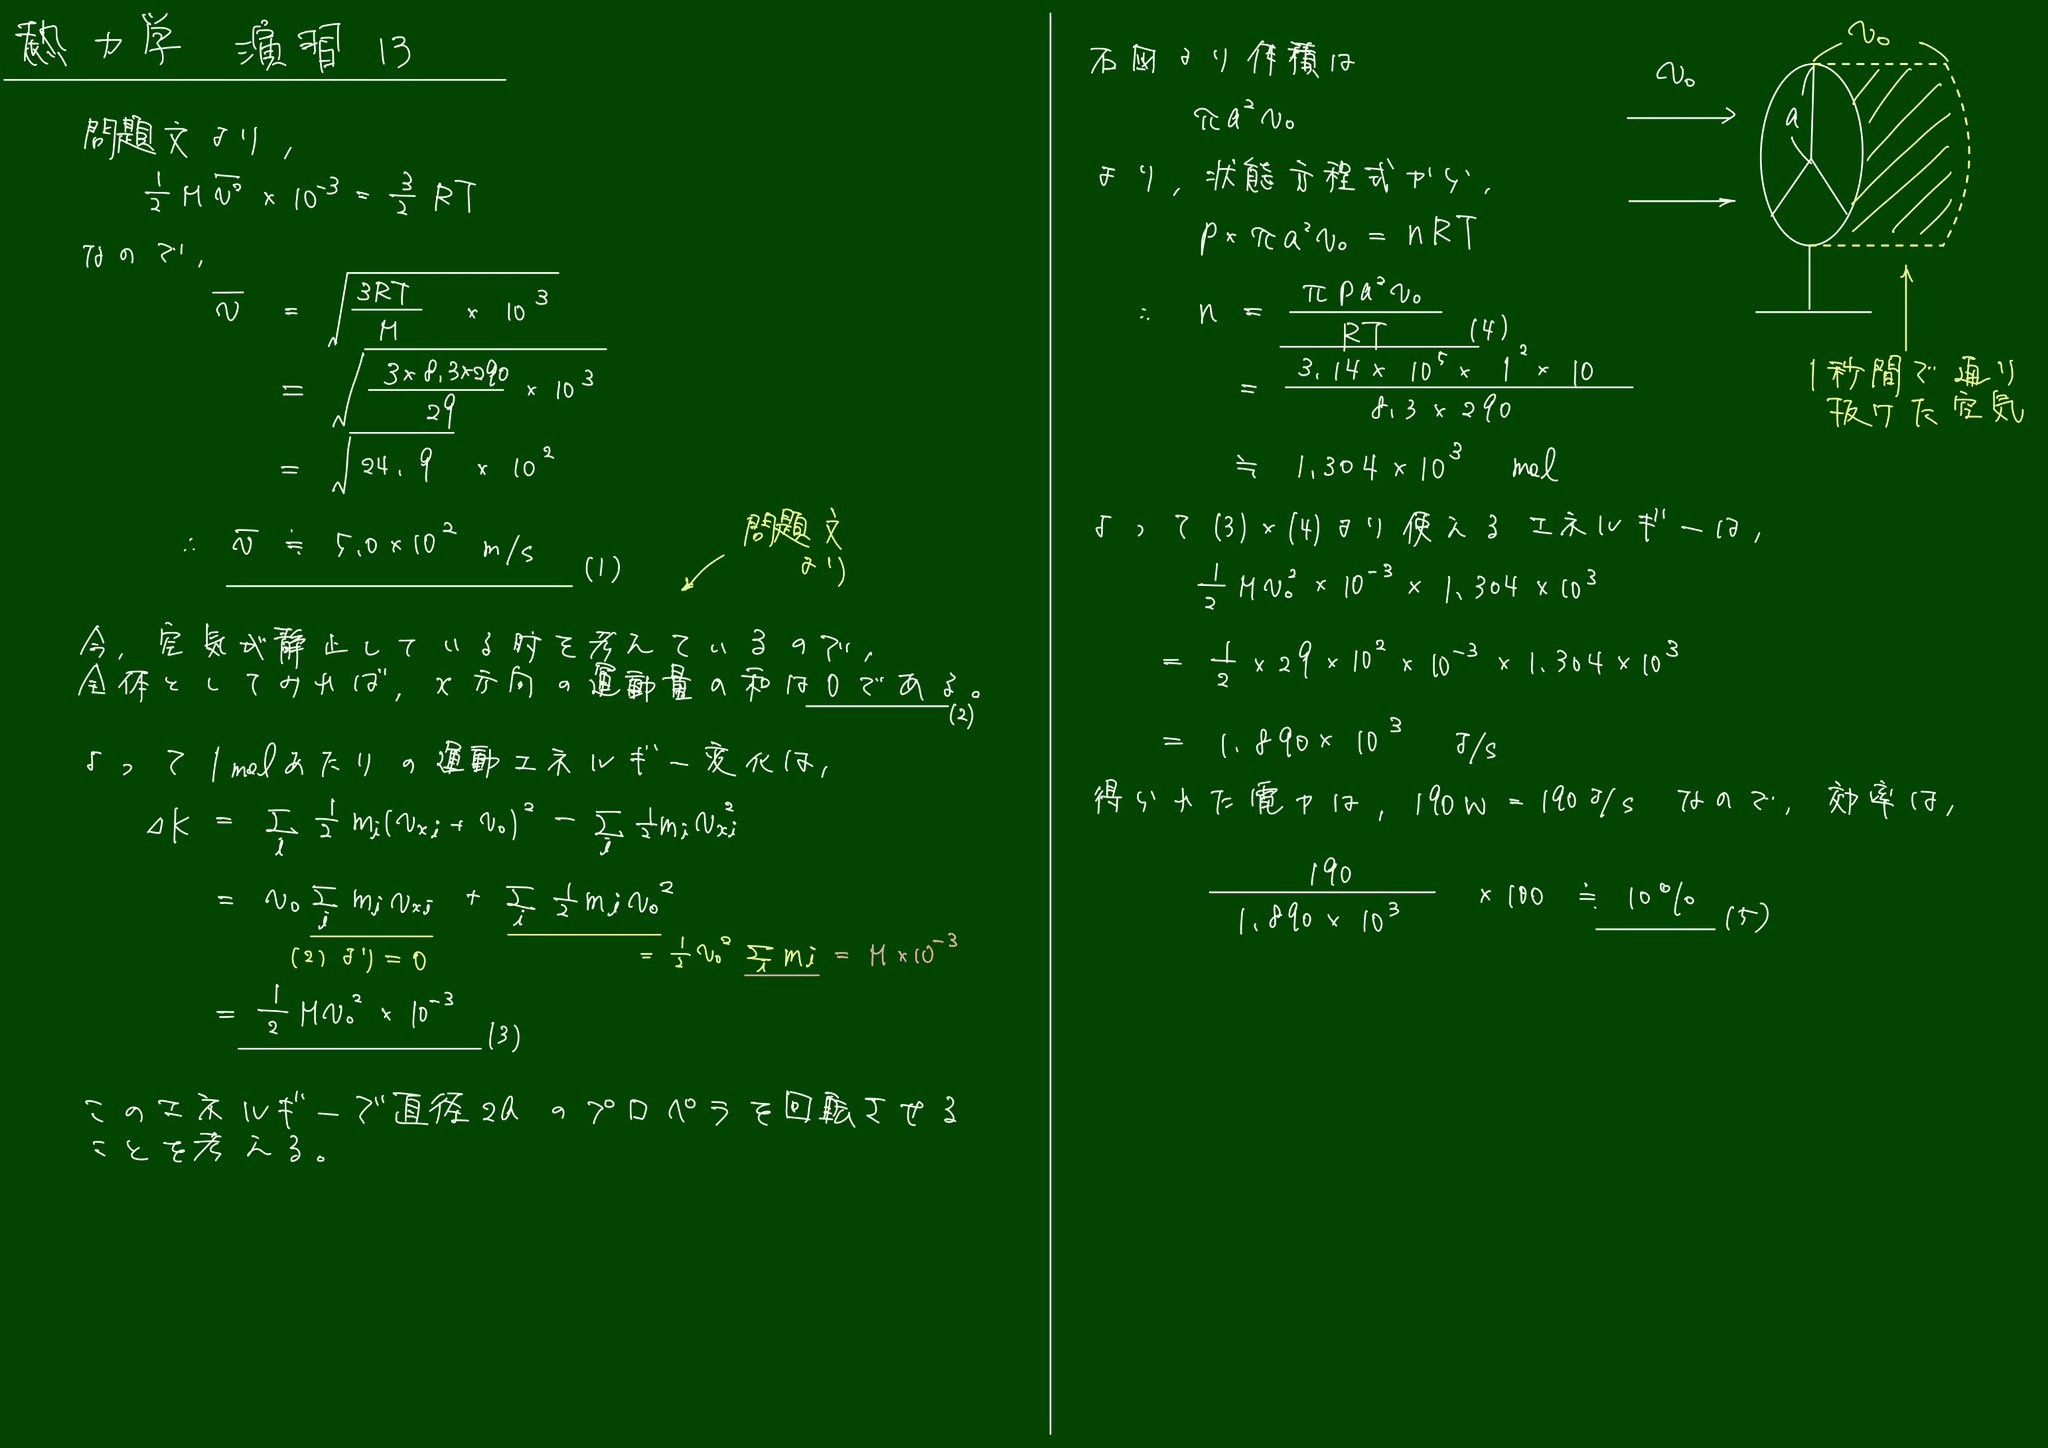 熱力学 演習 13
問題文より,
1/2 M v̄² × 10⁻³ = 3/2 RT
なので,
v̄ = √(3RT/M × 10³)
= √(3×8.3×290/29 × 10³)
= √24.9 × 10²
∴ v̄ ≒ 5.0×10² m/s (1)
問題文
より
今, 空気が静止している時を考えているので,
全体としてみれば, x方向の運動量の和は0である。(2)
よって 1molあたりの運動エネルギー変化は,
ΔK = Σ_i 1/2 m_i(v_xi + v₀)² − Σ_i 1/2 m_i v_xi²
= v₀ Σ_i m_i v_xi + Σ_i 1/2 m_i v₀²
(2)より=0
= 1/2 v₀² Σ_i m_i = M×10⁻³
= 1/2 M v₀² × 10⁻³ (3)
このエネルギーで直径2aのプロペラを回転させる
ことを考える。
右図より体積は
πa²v₀
より, 状態方程式から,
p×πa²v₀ = nRT
∴ n = πpa²v₀/RT (4)
= 3.14×10⁵×1²×10/8.3×290
≒ 1.304×10³ mol
よって (3)×(4)より使えるエネルギーは,
1/2 M v₀² × 10⁻³ × 1.304×10³
= 1/2 × 29 × 10² × 10⁻³ × 1.304×10³
= 1.890×10³ J/s
得られた電力は, 190W = 190J/s なので, 効率は,
190/1.890×10³ ×100 ≒ 10% (5)
v₀
v₀
a
1秒間で通り
抜けた空気